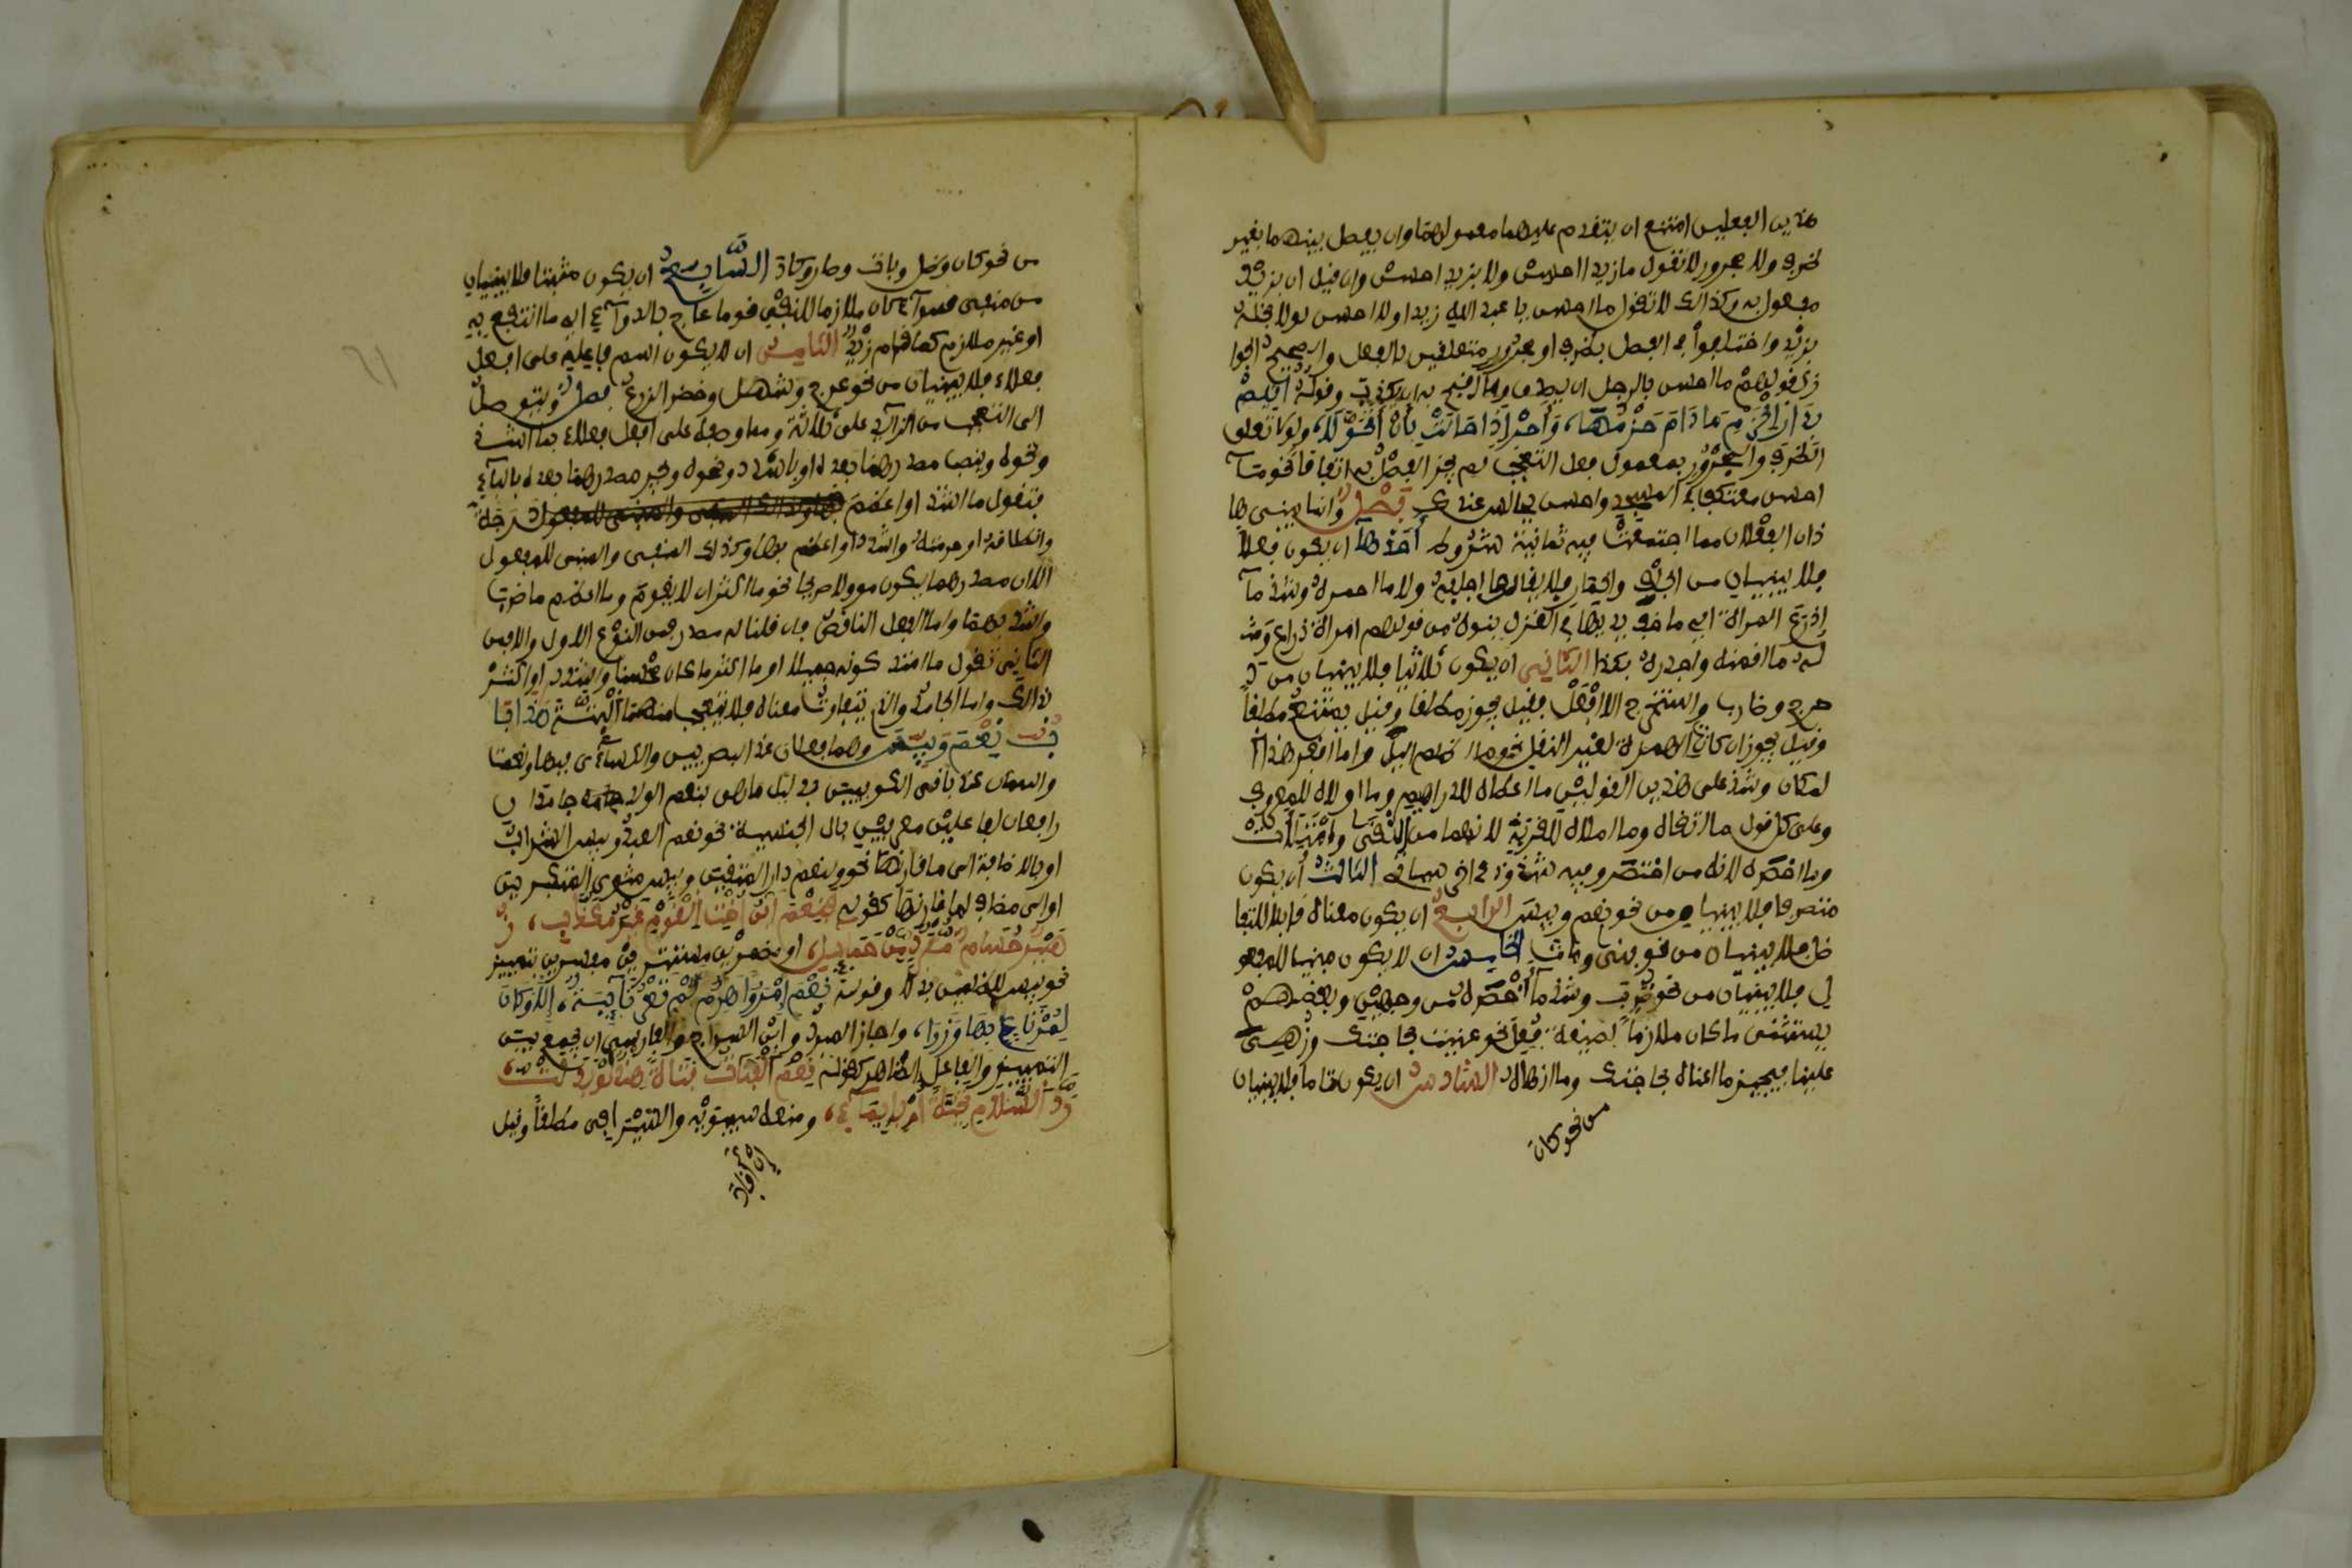 هذين الفعلين امتنع ان يتقدم عليهما معمولهما وان يفصل بينهما بغير
ظرف ولا مجرور لا تقول ما زيدا احسن ولا بزيد احسن وان قيل ان بزيد
مفعول به وكذالك لا تقول ما احسن يا عبد الله زيدا ولا احسن لولا بخله
بزيد واختلفوا في الفصل بظرف او مجرور متعلقين بالفعل والصحيح الجوا
ز كقولهم ما احسن بالرجل ان يصدق وما اقبح به ان يكذب وقوله اقيم
بدار الحزم ما دام حزمها، واحر اذا حالت بان اتحولا، ولو تعلق
الظرف والمجرور بمعمول فعل التعجب لم يجز الفصل به اتفاقا نحو ما
احسن معتكفا في المسجد واحسن بجالس عندك فصل وانما يبنى ها
ذان الفعلان مما اجتمعت فيه ثمانية شروط احدها ان يكون فعلا
فلا يبنيان من الجلف والحمار فلا يقال ما اجلفه ولا ما احمره وشذ ما
اذرع المراة اي ما اخف يديها في الغزل بنوه من قولهم امراة ذراع ومث
له ما اقمنه واجدره بكذا الثاني ان يكون ثلاثيا فلا يبنيان من د
حرج وضارب واستخرج الا افعل فقيل يجوز مطلقا وقيل يمتنع مطلقا
وقيل يجوز ان كانت الهمزة لغير النقل نحو ما اظلم اليل وما اقفر هذا ا
لمكان وشذ على هذين القولين ما اعطاه للدراهم وما اولاه للمعروف
وعلى كل قول ما اتقاه وما املاه للقربة لانهما من اتقى وامتلات
وما اخصره لانه من اختصر وفيه شذوذ اخر سياتي الثالث ان يكون
متصرفا فلا يبنيان من نحو نعم وبيس الرابع ان يكون معناه قابلا للتفا
ضل فلا يبنيان من نحو فنى ومات الخامس ان لا يكون مبنيا للمفعو
ل فلا يبنيان من نحو ضرب وشذ ما اخصره من وجهين وبعضهم
يستثنى ما كان ملازما لصيغة فعل نحو عنيت بحاجتك وزهى
علينا فيجيز ما اعناه بحاجتك وما ازهاه السادس ان يكون تاما فلا يبنيان
من نحو كان
من نحو كان وظل وبات وصار وكاد السابع ان يكون مثبتا فلا يبنيان
من منفى سوآء كان ملازما للنفي نحو ما عاج بالدوآء اي ما انتفع به
او غير ملازم كما قام زيد الثامن ان لا يكون اسم فاعله على افعل
فعلاء فلا يبنيان من نحو عرج وشهل وخضر الزرع فصل ويتوصل
الى التعجب من الزآيد على ثلاثة ومما وصفه على افعل فعلاء بما اشد
ونحوه وينصب مصدرهما بعده او باشدد ونحوه ويجر مصدرهما بعده بالبآء
فتقول ما اشد او اعظم دحرجته
وانطلاقه او حمرته واشدد او اعظم بها وكذلك المنفى والمبنى للمفعول
الا ان مصدرهما يكون موولا صريحا نحو ما اكثر ان لا يقوم وما اعظم ما ضرب
واشدد بهما واما الفعل الناقص فان قلنا له مصدر فمن النوع الاول والا فمن
الثاني تقول ما اشد كونه جميلا او ما اكثر ما كان محسنا واشدد او اكثر
بذالك واما الجامد والذي لا يتفاوت معناه فلا يتعجب منهما البتة هذا با
ب نعم وبيس وهما فعلان عند البصريين والكساءى بدليل فبها ونعمت
واسمان عند باقى الكوفيين بدليل ما هى بنعم الولد جامدان
رافعان لفاعلين معرفين بال الجنسية نحو نعم العبد وبيس الشراب
او بالاضافة الى ما قارنها نحو ولنعم دار المتقين وبيس مثوى المتكبرين
او الى مضاف لما قارنها كقوله فنعم ابن اخت القوم غير مكذب، ز
هير حسام مفرد من حمايل، او مضمرين مستترين مفسرين بتمييز
نحو بيس للظلمين بدلا وقوله نعم امروا هرم لم تعر نآيبة، الا وكان
لمرتاع بها وزرا، واجاز المبرد وابن السراج والفارسى ان يجمع بين
التمييز والفاعل الظاهر كقوله نعم الفتاة فتاة هند لو بذلت،
رد السلام نطقا او بايمآء، ومنعه سيبويه والسيرافى مطلقا وقيل
ان افاد